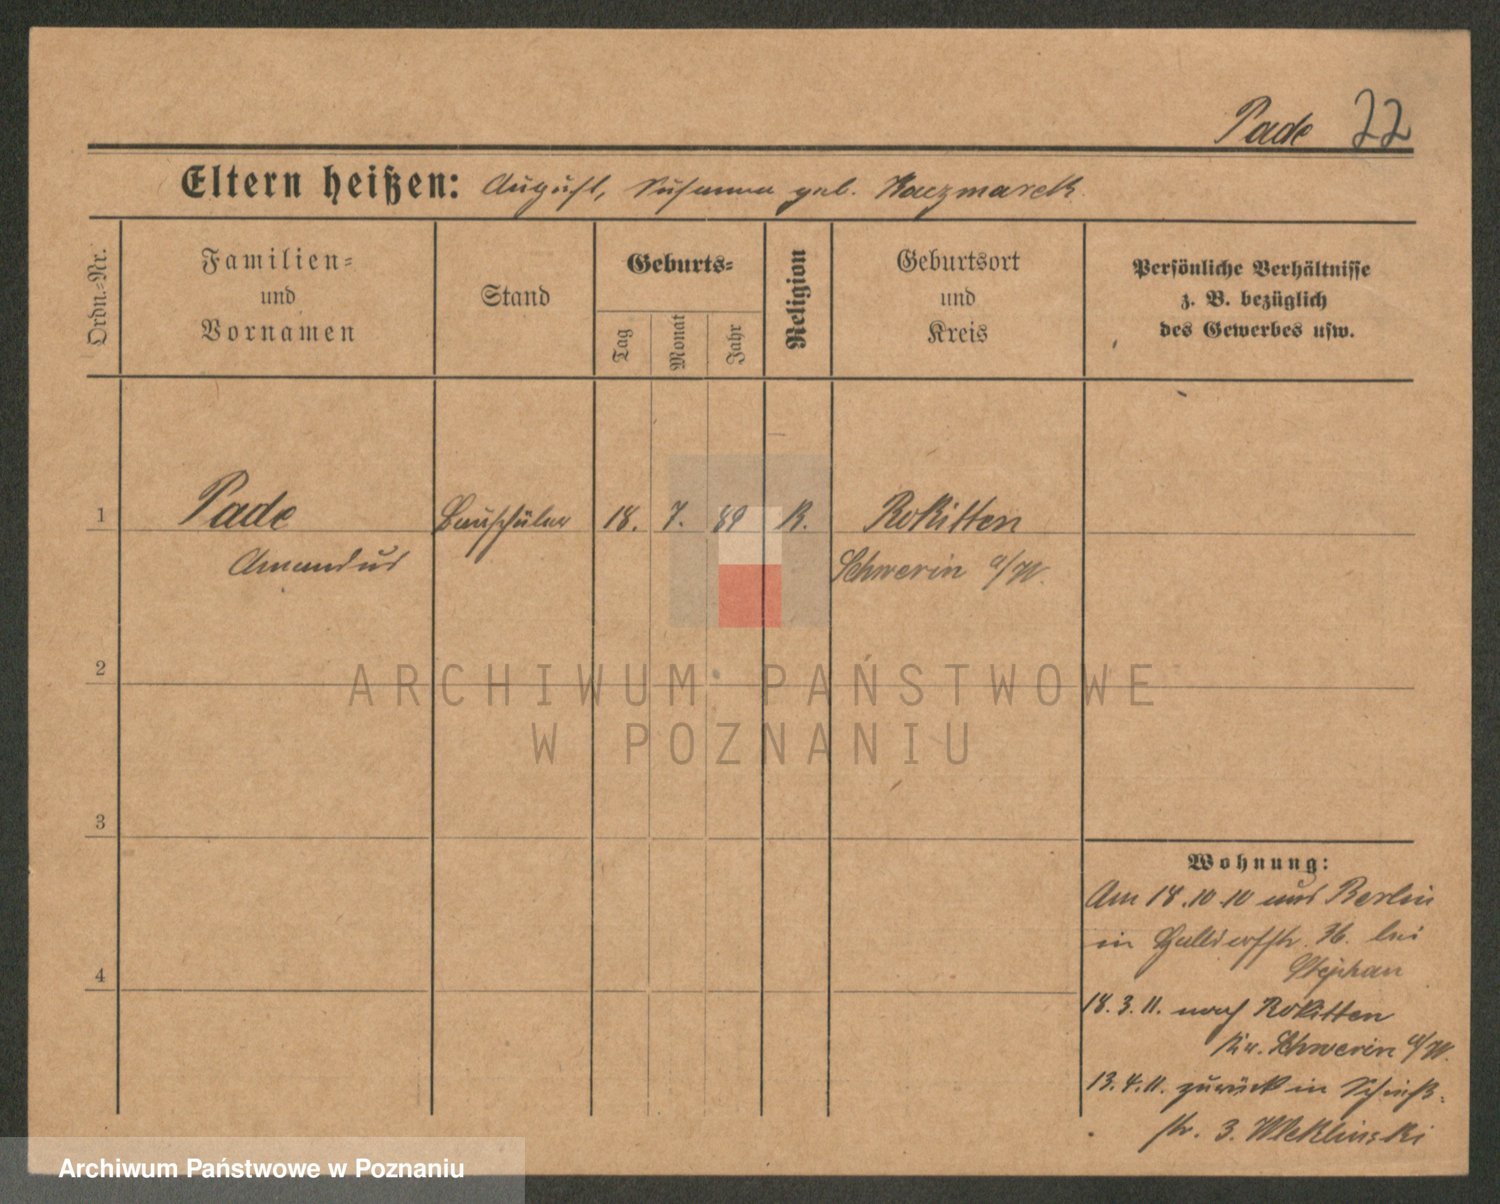 Pade 22
Eltern heißen: August, Susanna geb. Kaczmarek.
Ordn.-Nr.
Familien-
und
Vornamen
Stand
Geburts-
Tag
Monat
Jahr
Religion
Geburtsort
und
Kreis
Persönliche Verhältnisse
z. B. bezüglich
des Gewerbes usw.
1 Pade Bauschüler 18. 7. 89 K. Rokitten
Amandus Schwerin a/W.
2
3
4
Wohnung:
Am 18.10.10 aus Berlin
in 36. bei
Stephan
18.3.11. nach Rokitten
Kr. Schwerin a/W.
13.4.11. zurück in Schieß-
str. 3.
ARCHIWUM PAŃSTWOWE
W POZNANIU
Archiwum Państwowe w Poznaniu